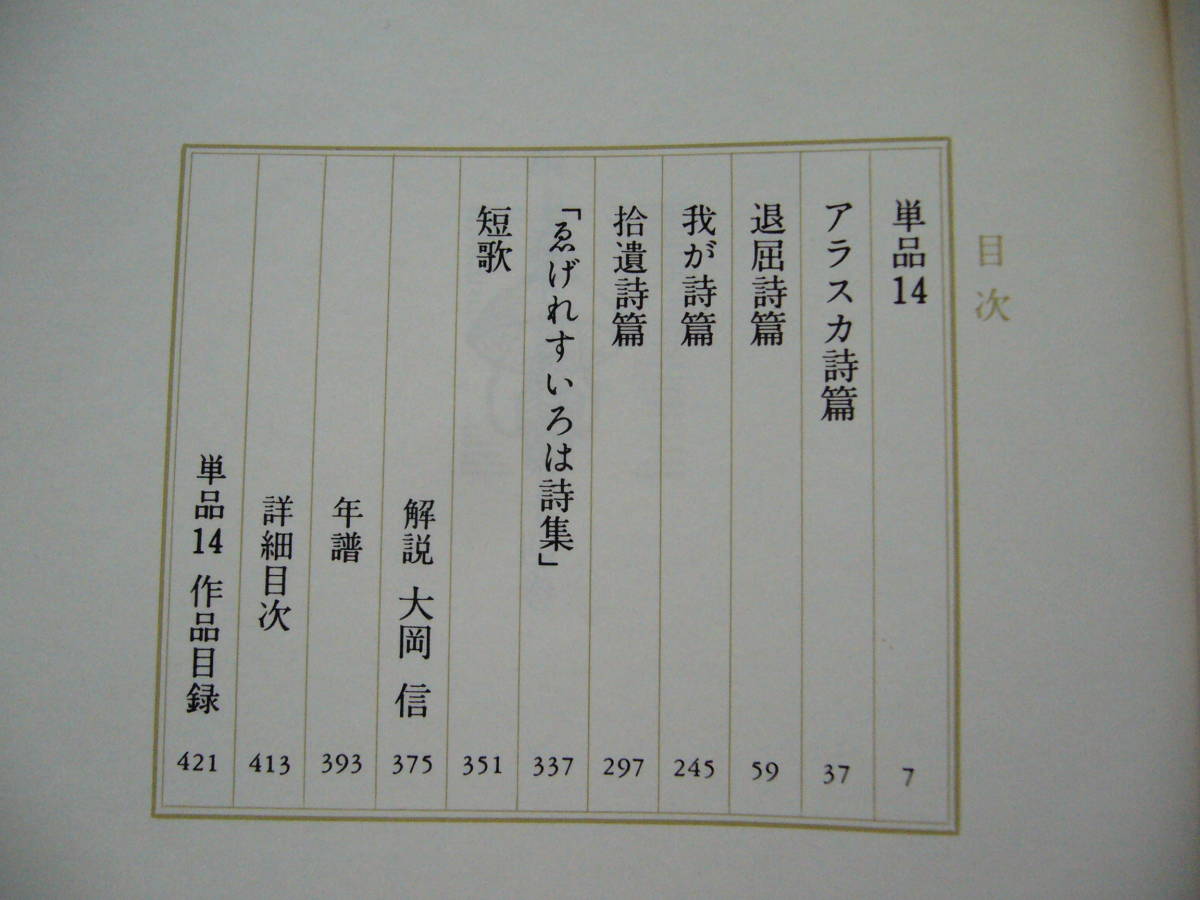 目次
単品14 7
アラスカ詩篇 37
退屈詩篇 59
我が詩篇 245
拾遺詩篇 297
「ゑげれすいろは詩集」 337
短歌 351
解説 大岡 信 375
年譜 393
詳細目次 413
単品14 作品目録 421